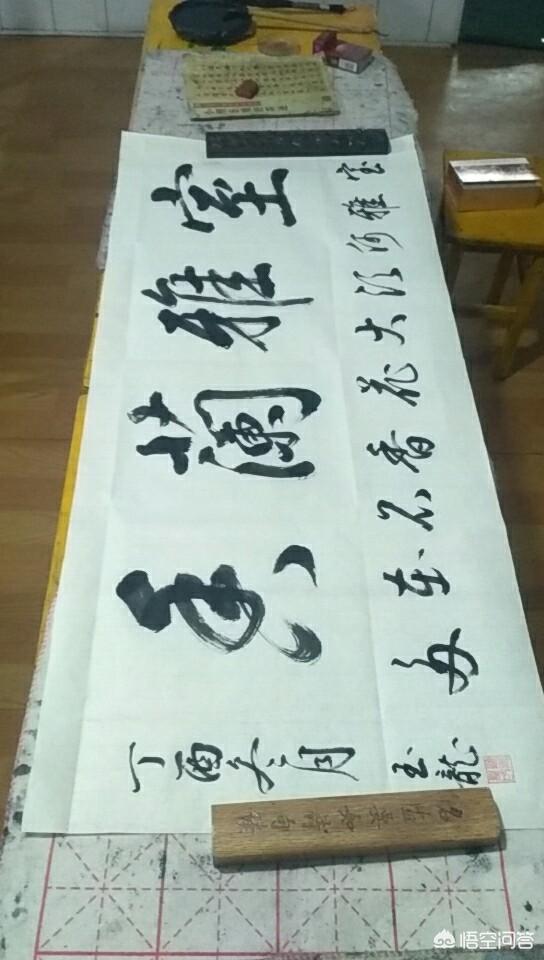 室雅蘭香
室雅何须大花香不在多
丁酉冬月
玉龍
悟空问答